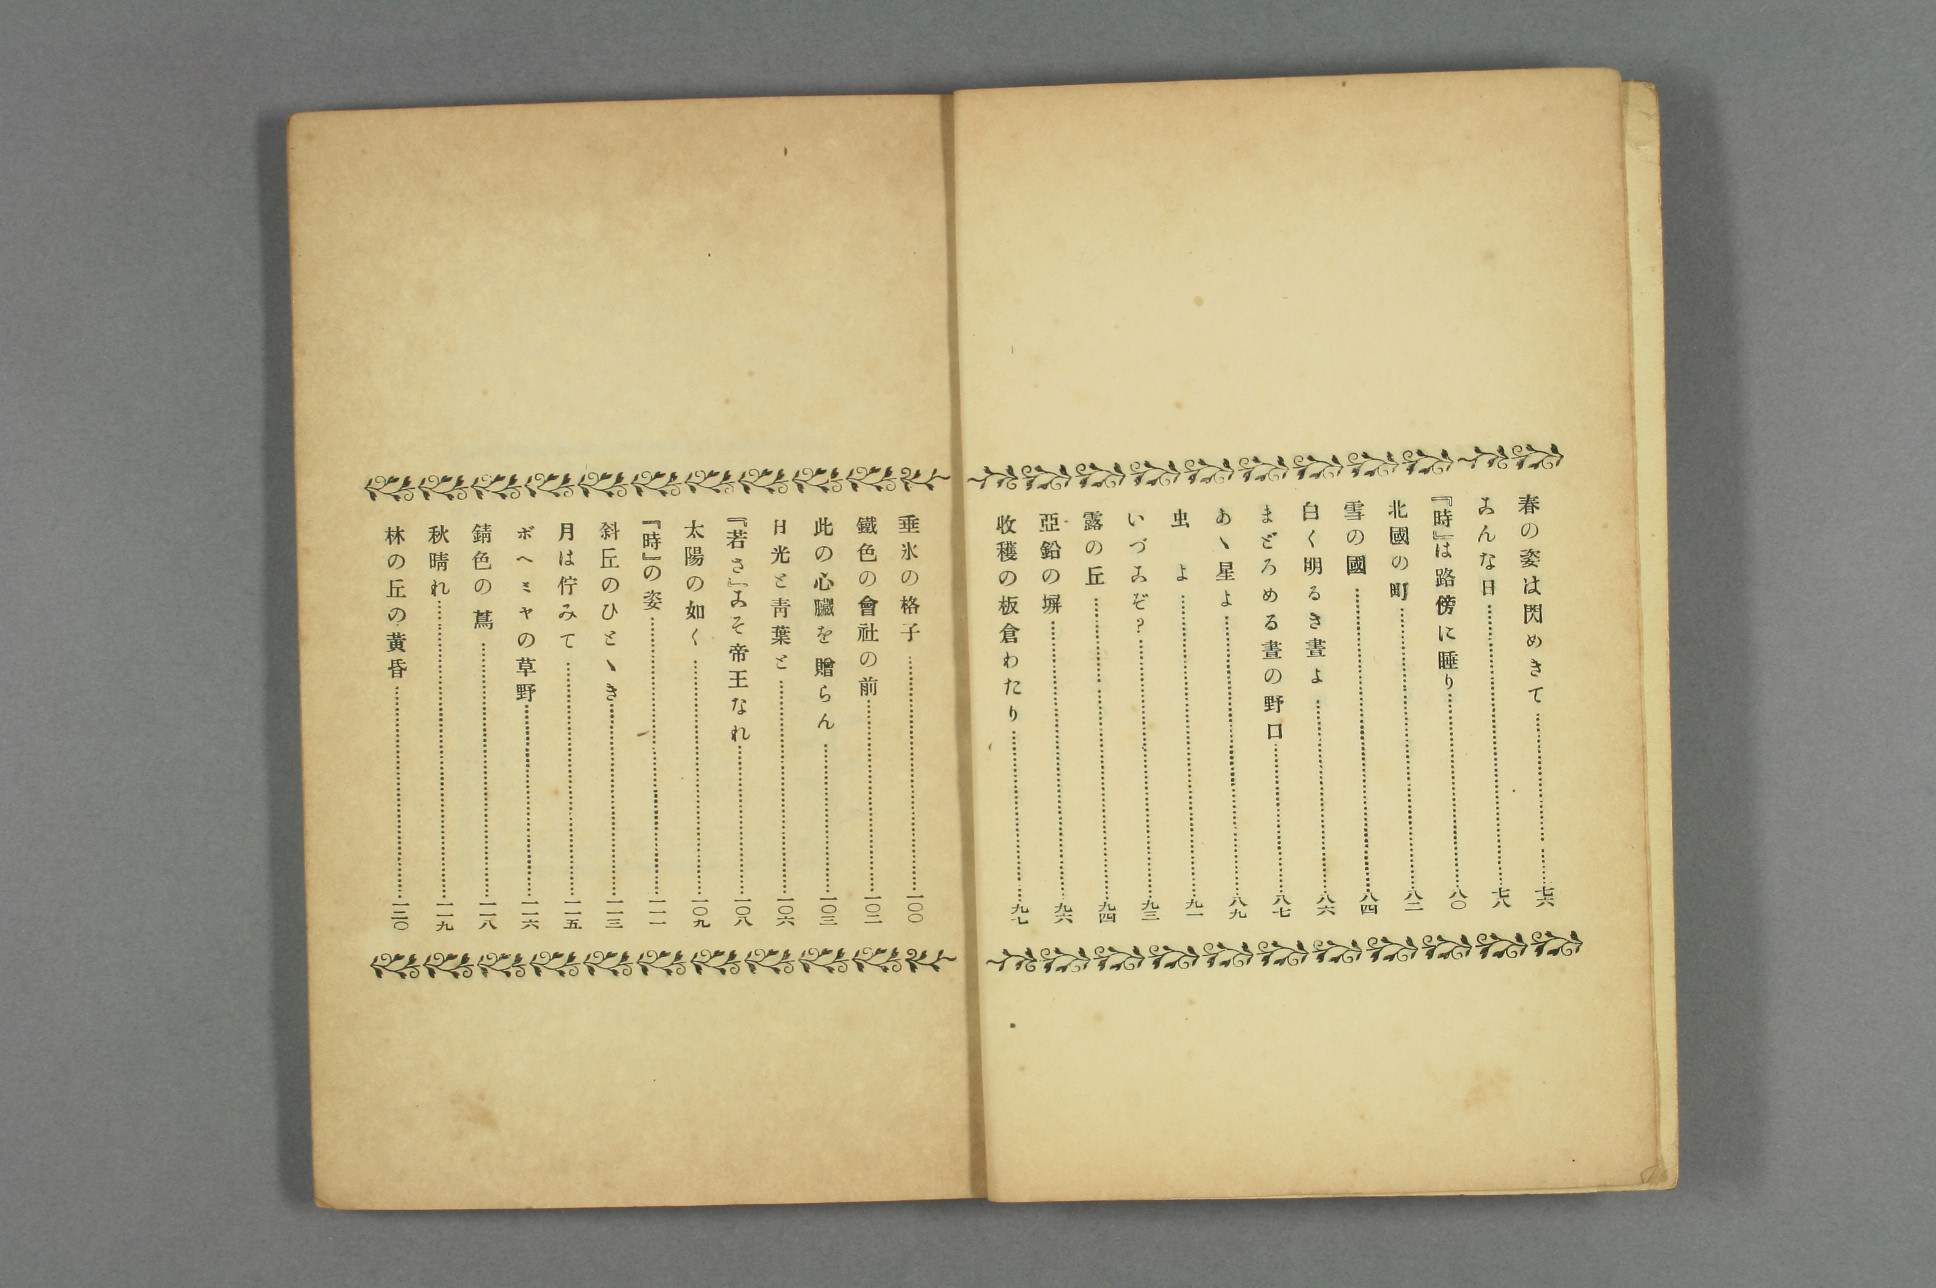 春の姿は閃めきて……七六
こんな日……七八
『時』は路傍に睡り……八〇
北國の町……八二
雪の國……八四
白く明るき晝よ……八六
まどろめる晝の野口……八七
あゝ星よ……八九
虫よ……九一
いづこぞ?……九三
露の丘……九四
亞鉛の塀……九六
收穫の板倉わたり……九七
垂氷の格子……一〇〇
鐵色の會社の前……一〇二
此の心臟を贈らん……一〇三
日光と青葉と……一〇六
『若さ』こそ帝王なれ……一〇八
太陽の如く……一〇九
『時』の姿……一一一
斜丘のひとゝき……一一三
月は佇みて……一一五
ボヘミヤの草野……一一六
錆色の蔦……一一八
秋晴れ……一一九
林の丘の黃昏……一二〇